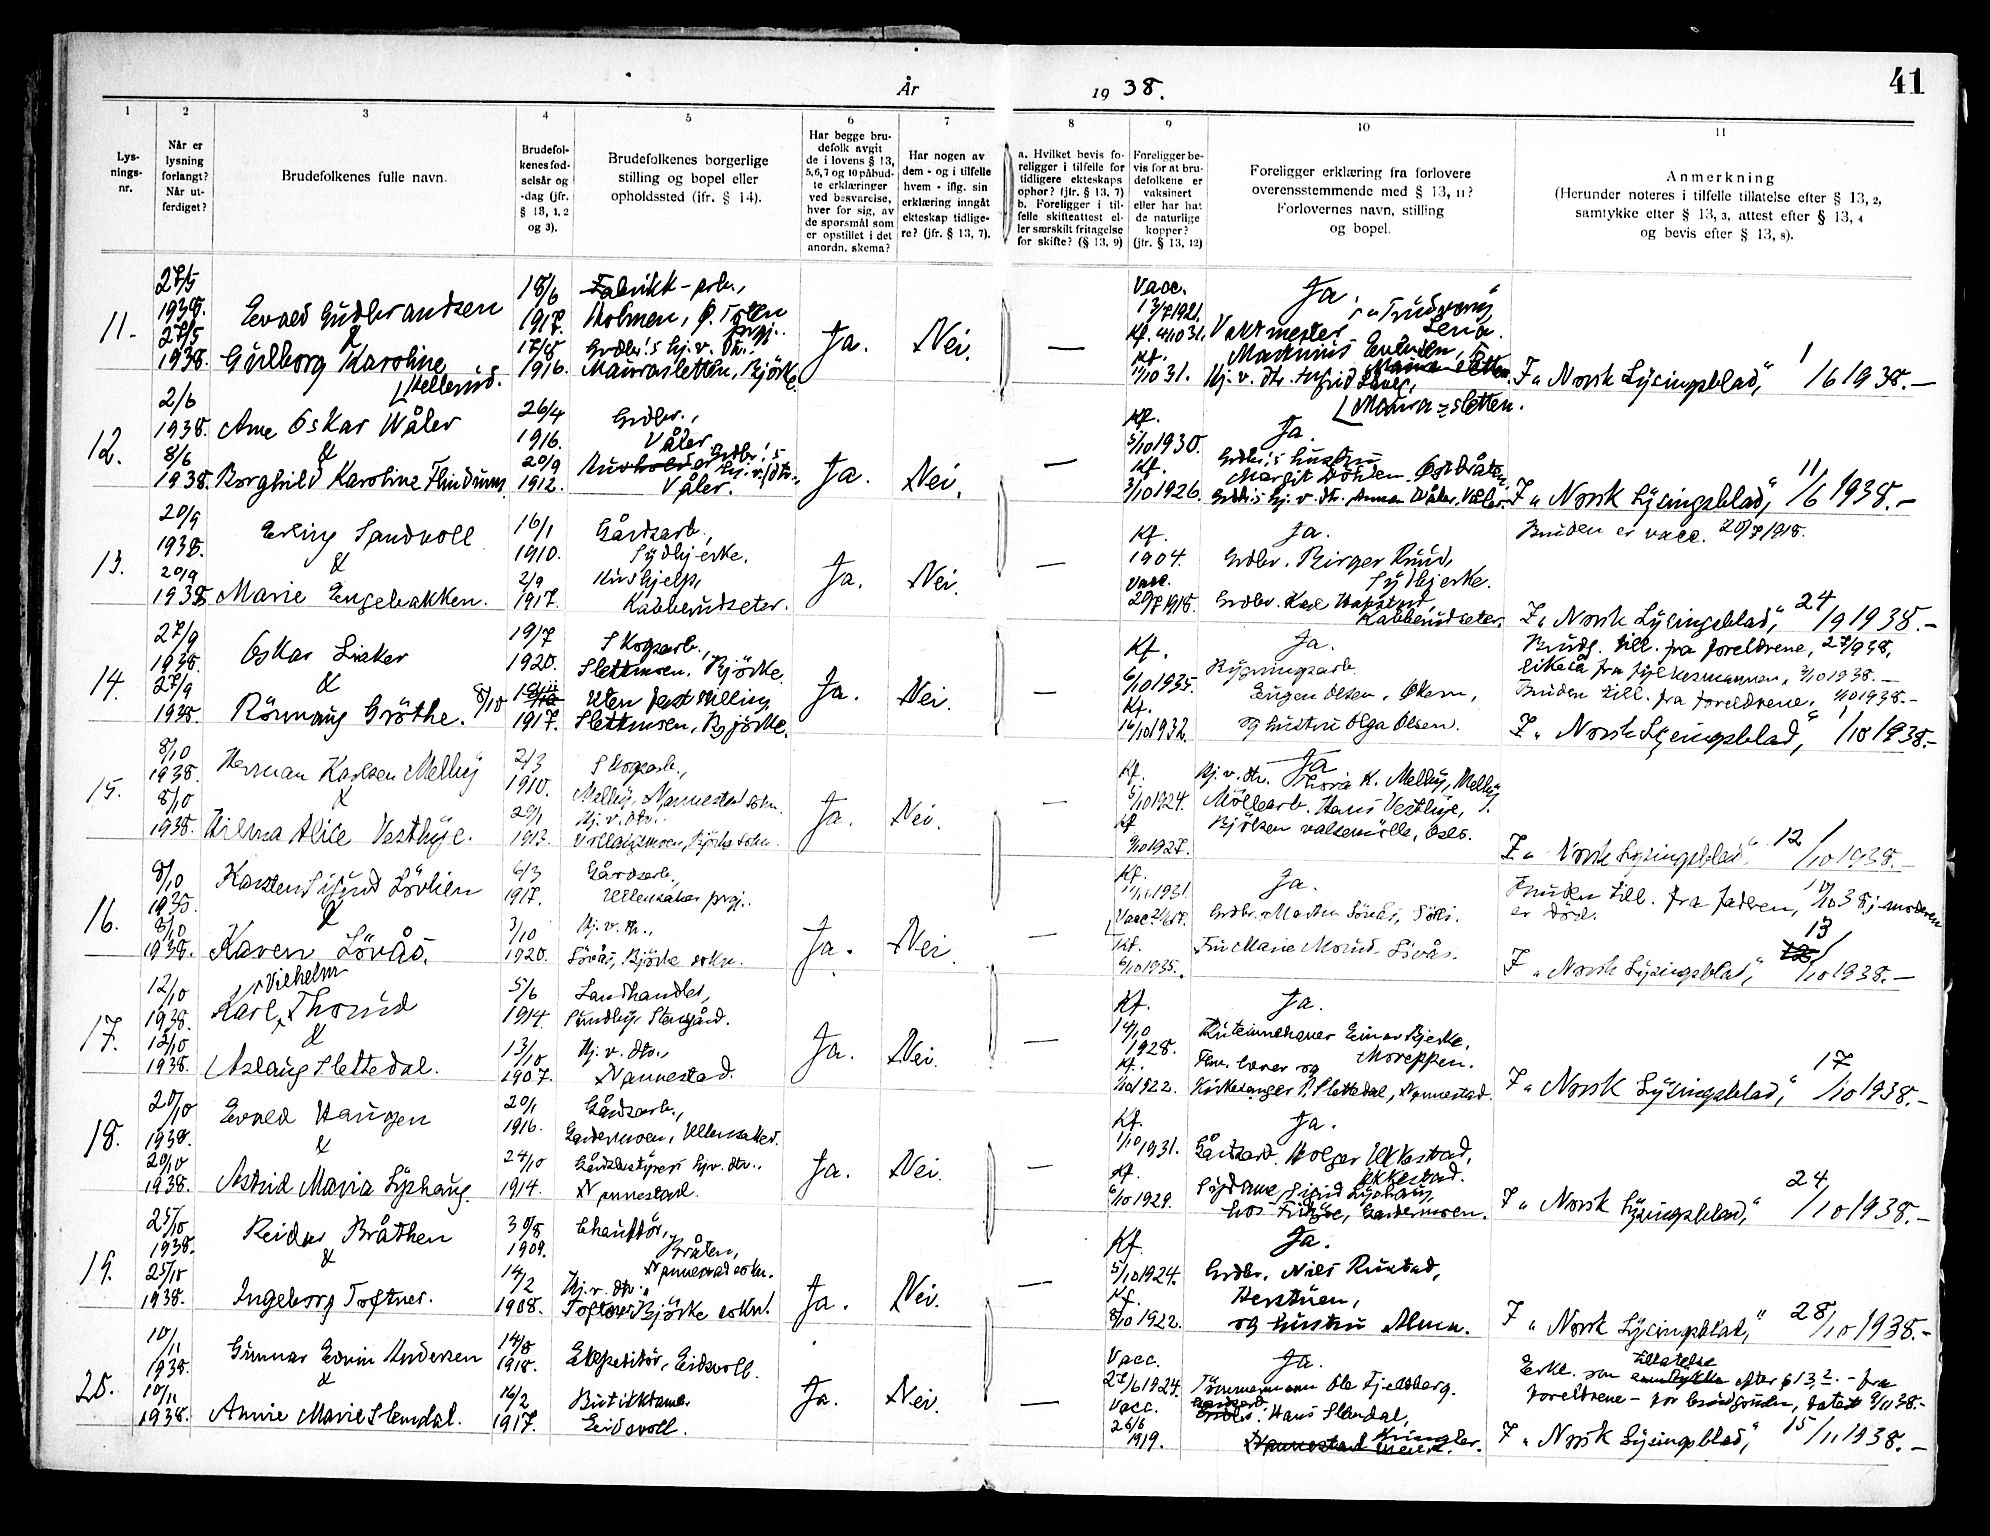 År 1938.
41
1
2
3
4
5
6
7
8
9
10
11
Lys-
nings-
nr.
Når er
lysning
forlangt?
Når ut-
ferdiget?
Brudefolkenes fulle navn.
Brudefol-
kenes fød-
selsår og
-dag (jfr.
§ 13, 1, 2
og 3).
Brudefolkenes borgerlige
stilling og bopel eller
opholdssted (jfr. § 14).
Har begge bru-
defolk avgit
de i lovens § 13,
5,6,7 og 10 påbud-
te erklæringer
ved besvarelse,
hver for sig, av
de spørsmål som
er opstillet i det
anordn. skema?
Har nogen av
dem - og i tilfelle
hvem - iflg. sin
erklæring inngått
ekteskap tidlige-
re? (jfr. § 13, 7).
a. Hvilket bevis fo-
religger i tilfelle for
tidligere ekteskaps
ophør? (jfr. § 13, 7)
b. Foreligger i til-
felle skifteattest el-
ler særskilt fritagelse
for skifte? (§ 13, 9)
Foreligger be-
vis for at bru-
defolkene er
vaksinert
eller har hat
de naturlige
kopper?
(jfr. § 13, 12)
Foreligger erklæring fra forlovere
overensstemmende med § 13, 11?
Forlovernes navn, stilling
og bopel.
Anmerkning
(Herunder noteres i tilfelle tillatelse efter § 13, 2,
samtykke efter § 13, 3, attest efter § 13, 4
og bevis efter § 13, 8).
11.
27/5
1938.
27/5
1938.
Evald Gudbrandsen
&
Gudborg Karoline
18/6
1917.
17/8
1916.
Fabrikk-arb.,
Holmen, Ø. Toten
prgj.
Grdbr.'s hj.v. dtr.
Maurasletten, Bjørke
Ja.
Nei.
—
Vacc.
13/7 1921.
Kf.
Kf.
Ja
Vaktmester
Lena.
Maura-sletten.
I „Norsk Lysingsblad," 1/6 1938.—
12.
2/6
1938.
8/6
1938.
Arne Oskar Wåler
&
Borghild Karoline Flindrum
26/4
1916.
20/9
1912.
Grdbr.,
Våler
Grdbr.'s
hj.v. dtr.,
Våler.
Ja.
Nei.
—
Kf.
5/10 1930.
Kf.
3/10 1926.
Ja.
Grdbr.'s hustru
Grdbr.s hj.v. dtr. Anna Wåler, Våler.
I „Norsk Lysingsblad," 11/6 1938.—
13.
20/9
1938.
20/9
1938
Erling Sandvoll
&
Marie Engebakken.
16/1
1910.
2/9
1917.
Gårdsarb.,
Sydbjerke.
Hushjelp,
Kabberudseter.
Ja.
Nei.
—
Kf.
1904.
Vacc.
20/7 1918.
Ja.
Grdbr. Birger Ruud,
Sydbjerke.
Grdbr. Karl
Kabberudseter.
Bruden er vacc. 20/7 1918.
I „Norsk Lysingsblad," 24/9 1938.—
14.
27/9
1938.
27/9
1938.
Oskar Liaker
&
Rönnaug Gröthe.
19/7
1920.
8/10
1917.
Skogsarb.,
Slettmoen, Bjørke.
Uten fast stilling
Slettmoen, Bjørke.
Ja.
Nei.
—
Kf.
6/10 1935.
Kf.
16/10 1932.
Ja.
Rygningsarb.
Eugen Olsen,
og hustru Olga Olsen.
Brudg. till. fra foreldrene, 27/9 38,
likeså fra fylkesmannen, 3/10 1938.—
Bruden till. fra foreldrene, 1/10 1938.—
I „Norsk Lysingsblad," 1/10 1938.—
15.
8/10
1938.
8/10
1938.
Herman Karlsen Melby
&
Hilma Alice Vestbye.
2/3
1910.
29/1
1913.
Skogsarb.,
Melby, Nannestad sokn.
Hj.v. dtr.
Bjørke sokn.
Ja.
Nei.
—
Kf.
5/10 1924.
Kf
9/10 1927.
Ja
Hj.v. dtr. Thora K. Melby, Melby
Möllearb. Hans Vestbye,
Bjölsen valsemölle, Oslo.
I „Norsk Lysingsblad," 12/10 1938.—
16.
8/10
1938.
8/10
1938.
Karsten Sigurd Lövlien
&
Karen Lövås.
6/3
1917.
3/10
1920.
Gårdsarb.,
Ullensaker prgj.
Hj.v. dtr.,
Lövås, Bjørke sokn.
Ja.
Nei.
—
Kf.
1931.
Kf.
6/10 1935.
Ja.
Grdbr. Martin Lövås,
Fru Marie Morud
Bruden till. fra faderen, /10 38; moderen
er död.
I „Norsk Lysingsblad," 13/10 1938.—
17.
12/10
1938.
12/10
1938.
Vilhelm
Karl Thorud
&
Aslaug Slettedal.
5/6
1914.
13/10
1907.
Landhandler,
Sundby, Stensgård.
Hj.v. dtr.,
Nannestad.
Ja.
Nei.
—
Kf.
14/10
1928.
Kf.
1/10 1922.
Ja.
Ruteinnehaver Einar Bjerke,
Moreppen.
Fhv. lærer og
Kirkesanger P. Slettedal, Nannestad.
I „Norsk Lysingsblad," 17/10 1938.—
18.
20/10
1938.
20/10
1938.
Evald Haugen
&
Astrid Maria Lyshaug.
20/1
1916.
24/10
1914.
Gårdsarb.,
Gardermoen, Ullensaker.
Gårdsbestyrers hj.v. dtr.,
Nannestad.
Ja.
Nei.
—
Kf.
1/10 1931.
Kf.
6/10 1929.
Ja.
Gårdsarb. Holger Ukkestad,
Ukkestad.
Sydame Sigrid Lyshaug,
Gardermoen.
I „Norsk Lysingsblad," 24/10 1938.—
19.
25/10
1938.
25/10
1938.
Reidar Bråthen
&
Ingeborg Toftner.
30/8
1909.
14/2
1908.
Chauffør,
Bråten,
Nannestad sokn.
Hj.v. dtr.,
Toftner, Bjørke sokn.
Ja.
Nei.
—
Kf.
5/10 1924.
Kf.
8/10 1922.
Ja.
Grdbr. Nils Rustad,
og hustru Alma.
I „Norsk Lysingsblad," 28/10 1938.—
20.
10/11
1938.
10/11
1938.
Gunnar Edvin Andersen
&
Annie Marie Stendal.
14/8
1918.
16/2
1917.
Ekspeditör, Eidsvoll.
Butikkdame
Eidsvoll.
Ja.
Nei.
—
Vacc.
27/6 1924.
Vacc.
26/6
1919.
Ja.
Tömmermann Ole Fjeldberg.
Hans Stendal,
Erkl. om tillatelse efter § 13,2.— fra
foreldrene — for brudgommen, datert 9/11 38.—
I „Norsk Lysingsblad," 15/11 1938.—